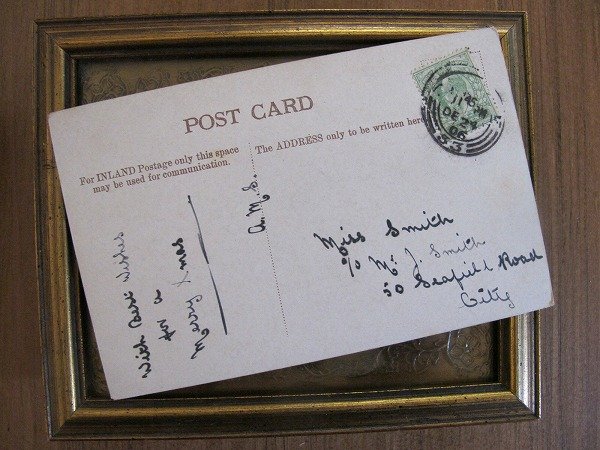 POST CARD
For INLAND Postage only this space
may be used for communication.
The ADDRESS only to be written here
With Best Wishes
for a
Merry Xmas
A.M.S.
Miss Smith
c/o Mr J. Smith
50 Seafield Road
City
DE 24
06